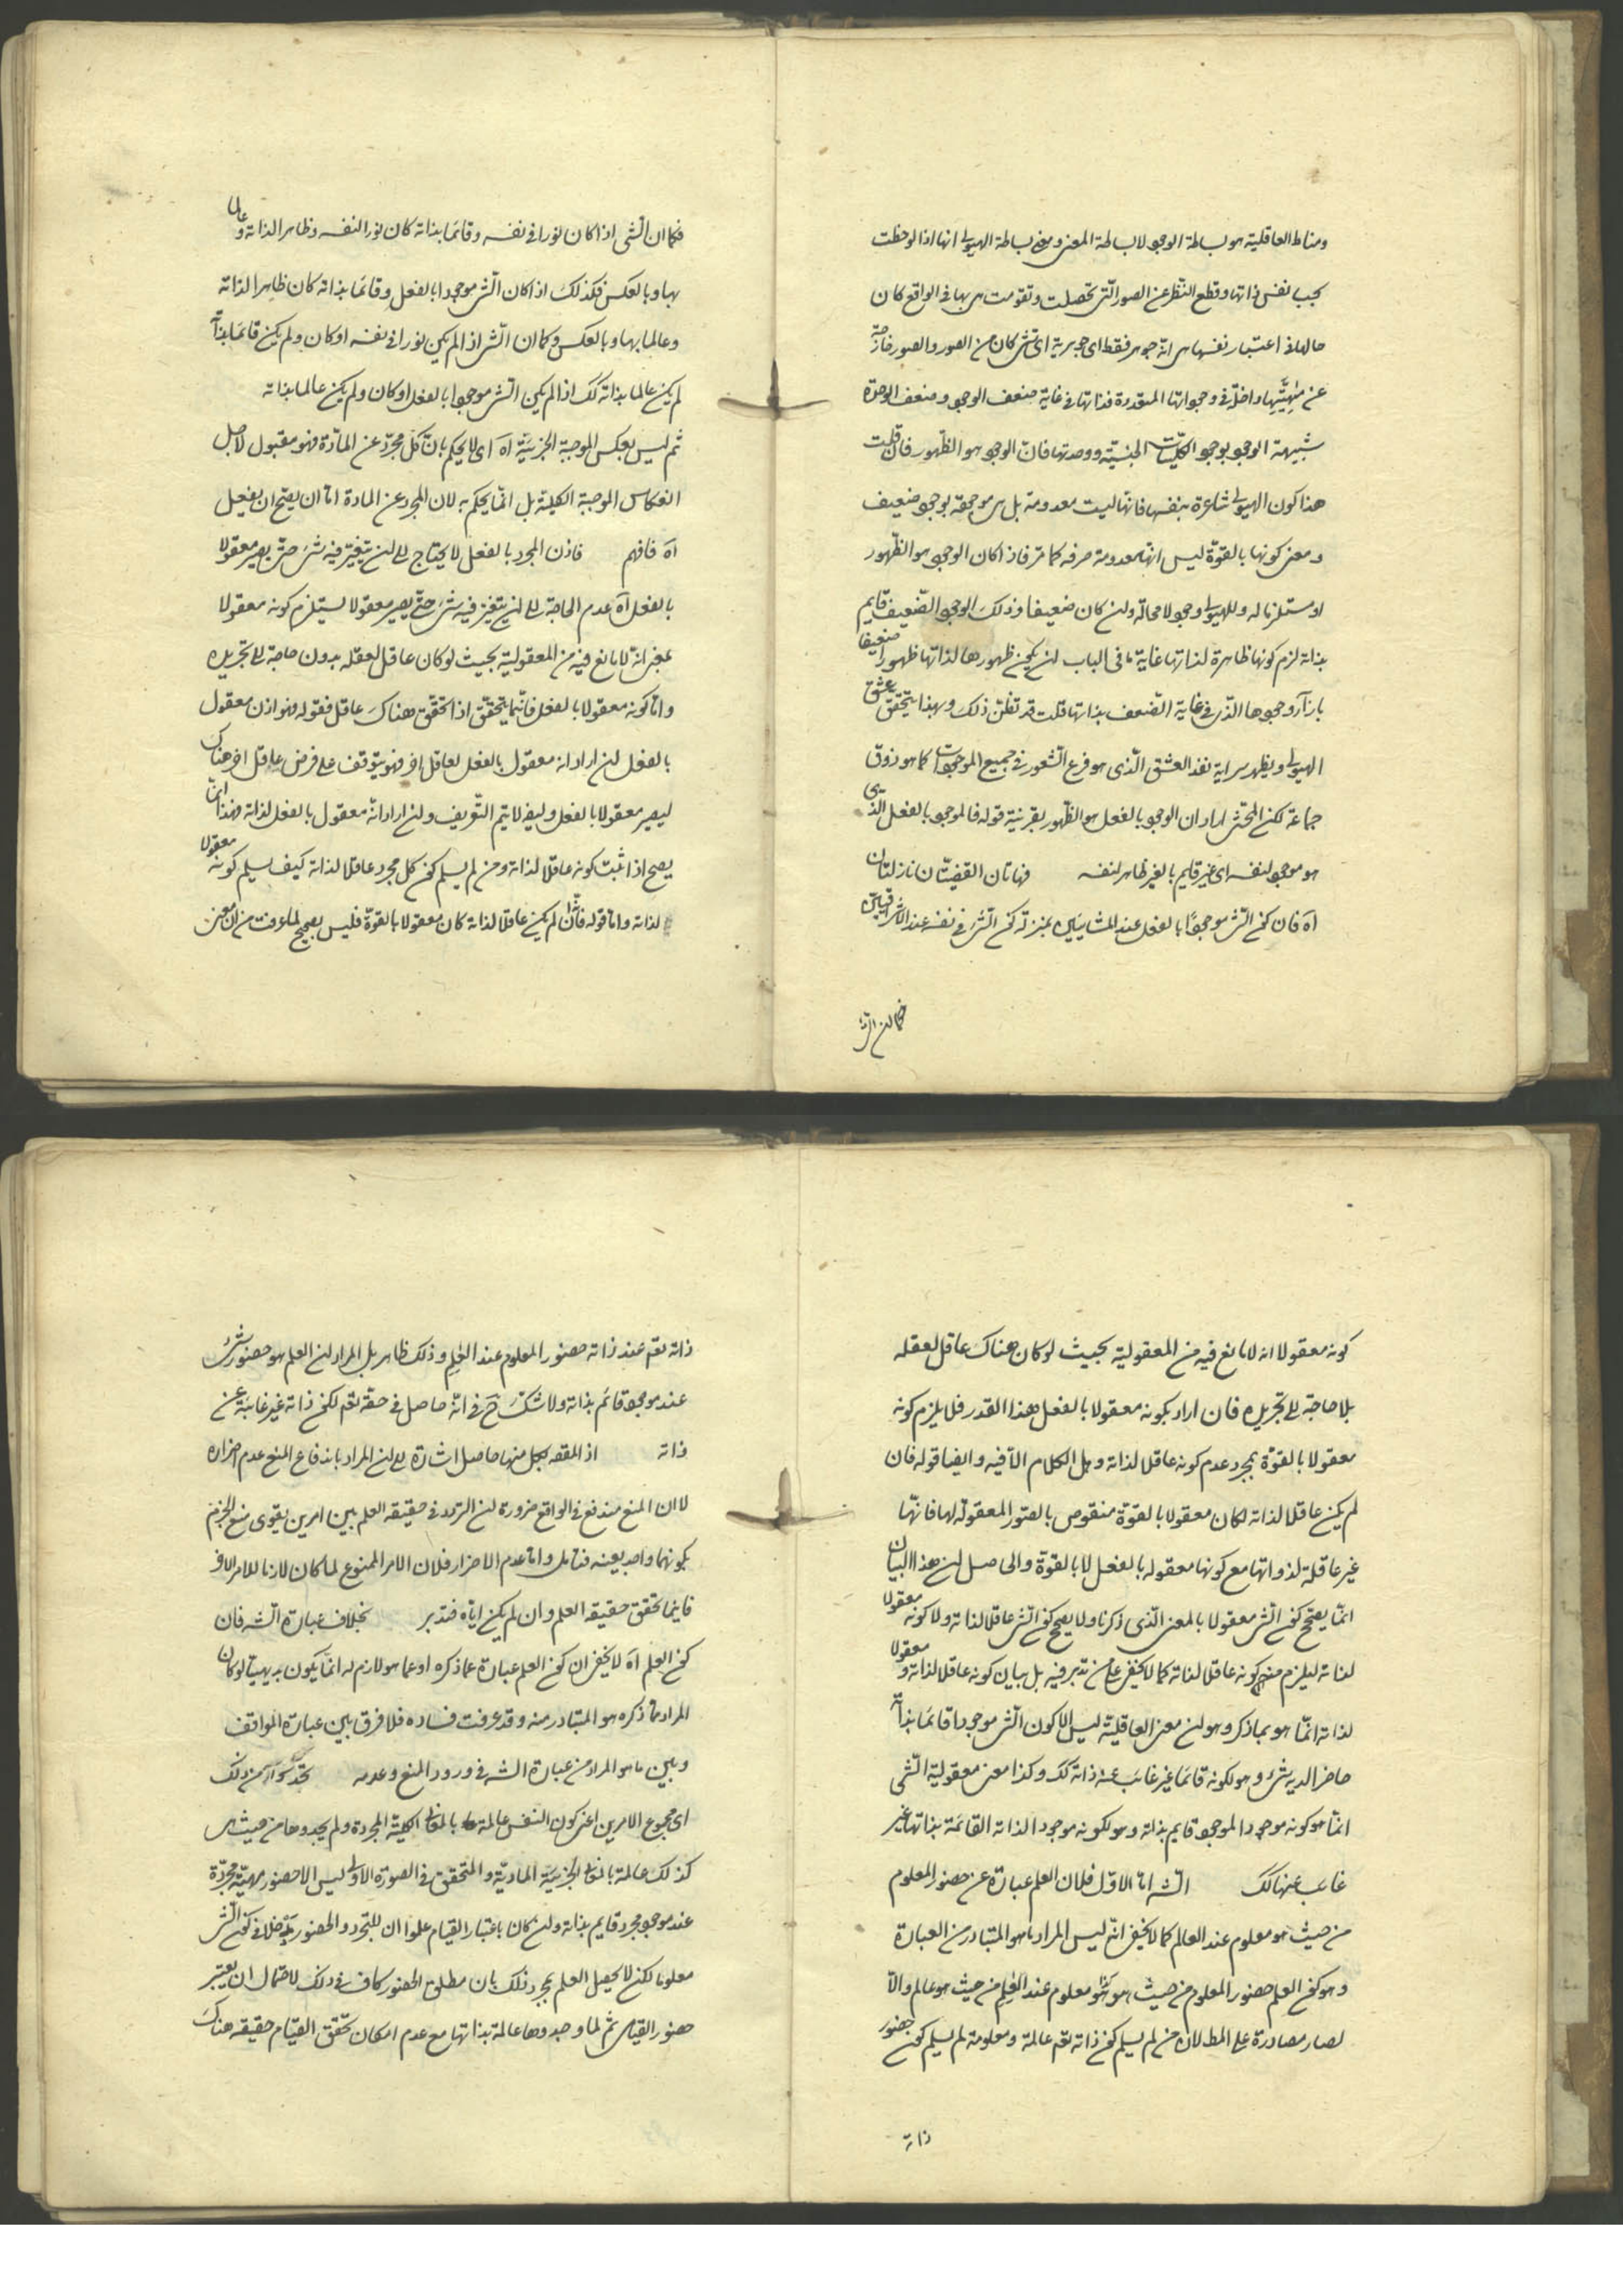 ومناط العاقلية هو بساطة الوجود لا بساطة المعنى ومعنى بساطة الهيولى انها اذا لوحظت
بحسب نفس ذاتها وقطع النظر عن الصور التى تحصلت وتقومت هى بها فى الواقع كان
حالها فى اعتبار نفسها هى انه جوهر فقط اى جوهرية اى شئ كان من الصور والصور خارجة
عن مهيتها داخلة فى وجوداتها المتعددة فذاتها فى غاية ضعف الوجود وضعف الوحدة
شبيهة الوجود بوجود الكليات الجنسية ووحدتها فان الوجود هو الظهور فان قلت
هذا كون الهيولى شاعرة بنفسها فانها ليست معدومة بل هى موجودة بوجود ضعيف
ومعنى كونها بالقوة ليس انها معدومة صرفه كما مر فاذا كان الوجود هو الظهور
او مستلزما له وللهيولى وجود لا محالة ولن كان ضعيفا وذلك الوجود الضعيف قايم
بذاته لزم كونها ظاهرة لذاتها غاية ما فى الباب لن يكون ظهورها لذاتها ظهورا ضعيفا
بازاء وجودها الذى فى غاية الضعف بذاتها قلت قد تفطن ذلك وبهذا يتحقق عشق
الهيولى ويظهر سراية نفذ العشق الذى هو فرع الشعور فى جميع الموجودات كما هو ذوق
جماعة لكن المحشى اراد ان الوجود بالفعل هو الظهور بقرينة قوله فالموجود بالفعل الذى
هو موجود لنفسه اى غير قايم بالغير ظاهر لنفسه فهاتان القضيتان نازلتان
اه فان كون الشئ موجودا بالفعل عند المشائيين بمنزلة كون الشئ فى نفسه عند الاشراقيين
فكما لن الشئ
فكما ان الشى اذا كان نورا فى نفسه وقائما بذاته كان نورا لنفسه وظاهرا لذاته وعالما
بها وبالعكس فكذلك اذا كان الشئ موجودا بالفعل وقائما بذاته كان ظاهرا لذاته
وعالما بها وبالعكس وكما ان الشئ اذا لم يكن نورا فى نفسه او كان ولم يكن قائما بذاته
لم يكن عالما بذاته كك اذا لم يكن الشئ موجودا بالفعل او كان ولم يكن عالما بذاته
ثم ليس بعكس الموجبة الجزئية اه اى لا يحكم بان كل مجرد عن المادة فهو معقول لاجل
انعكاس الموجبة الكلية بل انما يحكم به لان المجرد عن المادة اما ان يصح ان يعقل
اه فافهم فاذن المجرد بالفعل لا يحتاج الى لن يتغير فيه شئ حتى يصير معقولا
بالفعل اه عدم الحاجة الى لن يتغير فيه شئ حتى يصير معقولا لا يستلزم كونه معقولا
بمعنى انه لا مانع فيه من المعقولية بحيث لو كان عاقل لعقله بدون حاجة الى تجريده
واما كونه معقولا بالفعل فانما يتحقق اذا تحقق هناك عاقل فقوله فهو اذن معقول
بالفعل لن اراد انه معقول بالفعل لعاقل اخر فهو يتوقف على فرض عاقل اخر هناك
ليصير معقولا بالفعل وليفر لا يتم التعريف ولن اراد انه معقول بالفعل لذاته فهذا انما
يصح اذا ثبت كونه عاقلا لذاته ومن لم يسلم كون كل مجرد عاقلا لذاته كيف يسلم كونه معقولا
لذاته واما قوله فان لم يكن عاقلا لذاته كان معقولا بالقوة فليس بصحيح لما عرفت من ان معنى
كونه معقولا انه لا مانع فيه من المعقولية بحيث لو كان هناك عاقل لعقله
بلا حاجة الى تجريده فان اراد بكونه معقولا بالفعل هذا القدر فلا يلزم كونه
معقولا بالقوة بمجرد عدم كونه عاقلا لذاته وهل الكلام الا فيه وايضا قوله فان
لم يكن عاقلا لذاته لكان معقولا بالقوة منقوض بالصور المعقولة لها فانها
غير عاقلة لذواتها مع كونها معقوله بالفعل لا بالقوة والحاصل لن هذا البيان
انما يصحح كون الشئ معقولا بالمعنى الذى ذكرنا ولا يصحح كون الشئ عاقلا لذاته ولا كونه معقولا
لذاته ليلزم منه كونه عاقلا لذاته كما لا يخفى على من تدبر فيه بل بيان كونه عاقلا لذاته ومعقولا
لذاته انما هو بما ذكر وهو لن معنى العاقلية ليس الا كون الشئ موجودا قائما بذاته
حاضر الديه شئ وهو لكونه قائما غير غائب عنه ذاته كك وكذا معنى معقولية الشى
انما هو كونه موجودا لموجود قايم بذاته وهو لكونه موجودا لذاته القائمة بذاتها غير
غائب عنها كك الشه اما الاول فلان العلم عبارة عن حضور المعلوم
من حيث هو معلوم عند العالم كما لا يخفى انه ليس المراد ما هو المتبادر من العبارة
وهو كون العلم حضور المعلوم من حيث هو معلوم عند العالم من حيث هو عالم والا
لصار مصادرة على المط لان من لم يسلم كون ذاته تعم عالمة ومعلومة لم يسلم كون حضور
ذاته
ذاته تعم عند ذاته حضور المعلوم عند العالم وذلك ظاهر بل المراد لن العلم هو حضور شئ
عند موجود قائم بذاته ولا شك ح فى انه حاصل فى حقه تعم لكون ذاته غير غائبة عن
ذاته اذ المقصد بكل منها حاصل اشارة الى لن المراد باندفاع المنع عدم اضراره
لا ان المنع مندفع فى الواقع ضرورة لن التردد فى حقيقه العلم بين امرين يقوى منع الجزم
بكونهما واحد بعينه فتامل واما عدم الاضرار فلان الامر الممنوع لما كان لازما للامر الاخر
فاينما تحقق حقيقه العلم وان لم يكن اياه فتدبر بخلاف عبارة الشه فان
كون العلم اه لا يخفى ان كون العلم عبارة عما ذكره او عما هو لازم له انما يكون بديهيا لو كان
المراد ما ذكره هو المتبادر منه وقد عرفت فساده فلا فرق بين عبارة المواقف
وبين ما هو المراد من عبارة الشه فى ورود المنع وعدمه ذلك
اى مجموع الامرين اعنى كون النفس عالمة بالمعانى الكلية المجردة ولم يجدوها من حيث هى
كذلك عالمة بالمعانى الجزئية المادية والمتحقق فى الصورة الاولى ليس الا حضور مهية مجردة
عند موجود مجرد قايم بذاته ولن كان باعتبار القيام علموا ان للتجرد والحضور مدخلا فى كون الشئ
معلوما لكن لا يحصل العلم بمجرد ذلك بان مطلق الحضور كاف فى ذلك لاحتمال ان يعتبر
حضور القيامى ثم لما وجدوها عالمة بذاتها مع عدم امكان تحقق القيام حقيقه هناك